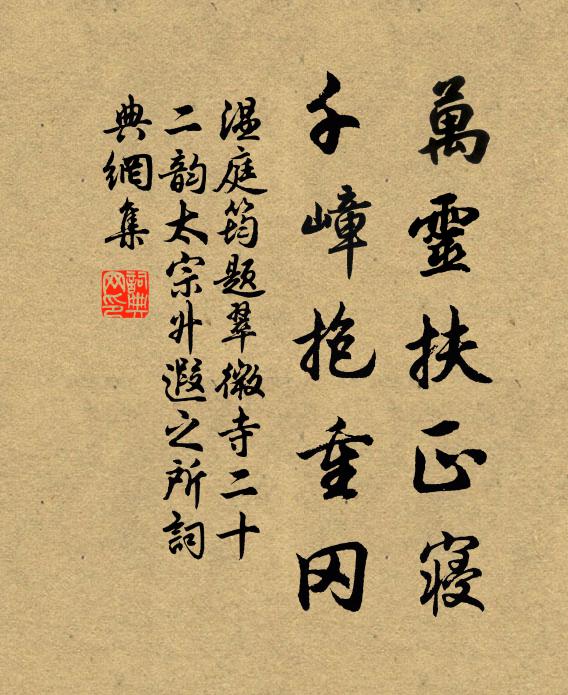 萬靈扶正寢
千嶂抱重冈
温庭筠题翠微寺二十
二韵太宗升遐之所詞
典網集
詞典网印